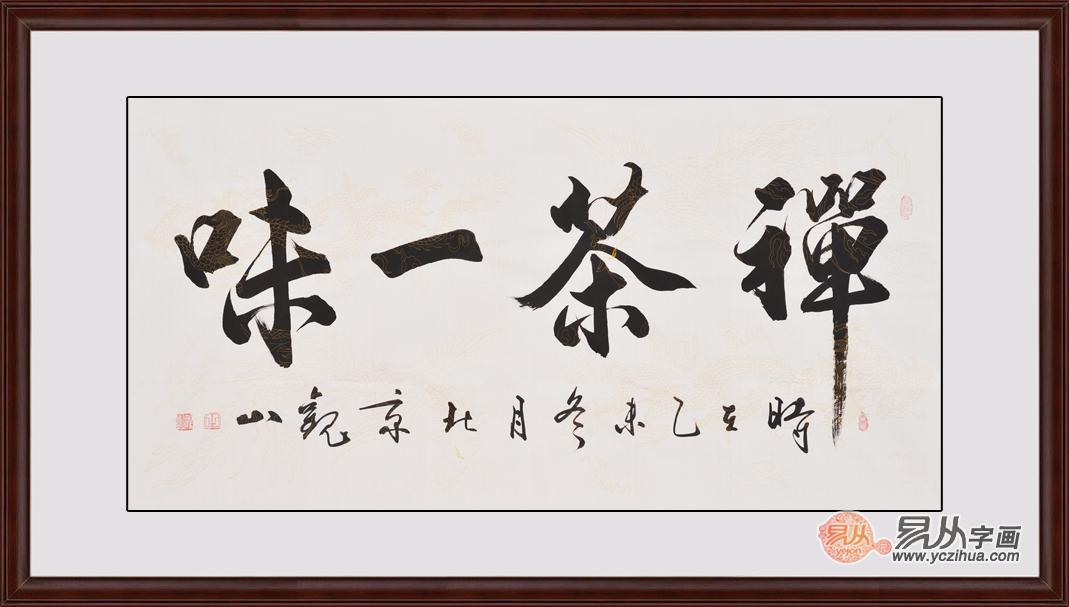 禪茶一味
時在乙未冬月北京觀山
易从
yejon
易从字画
www.yczihua.com